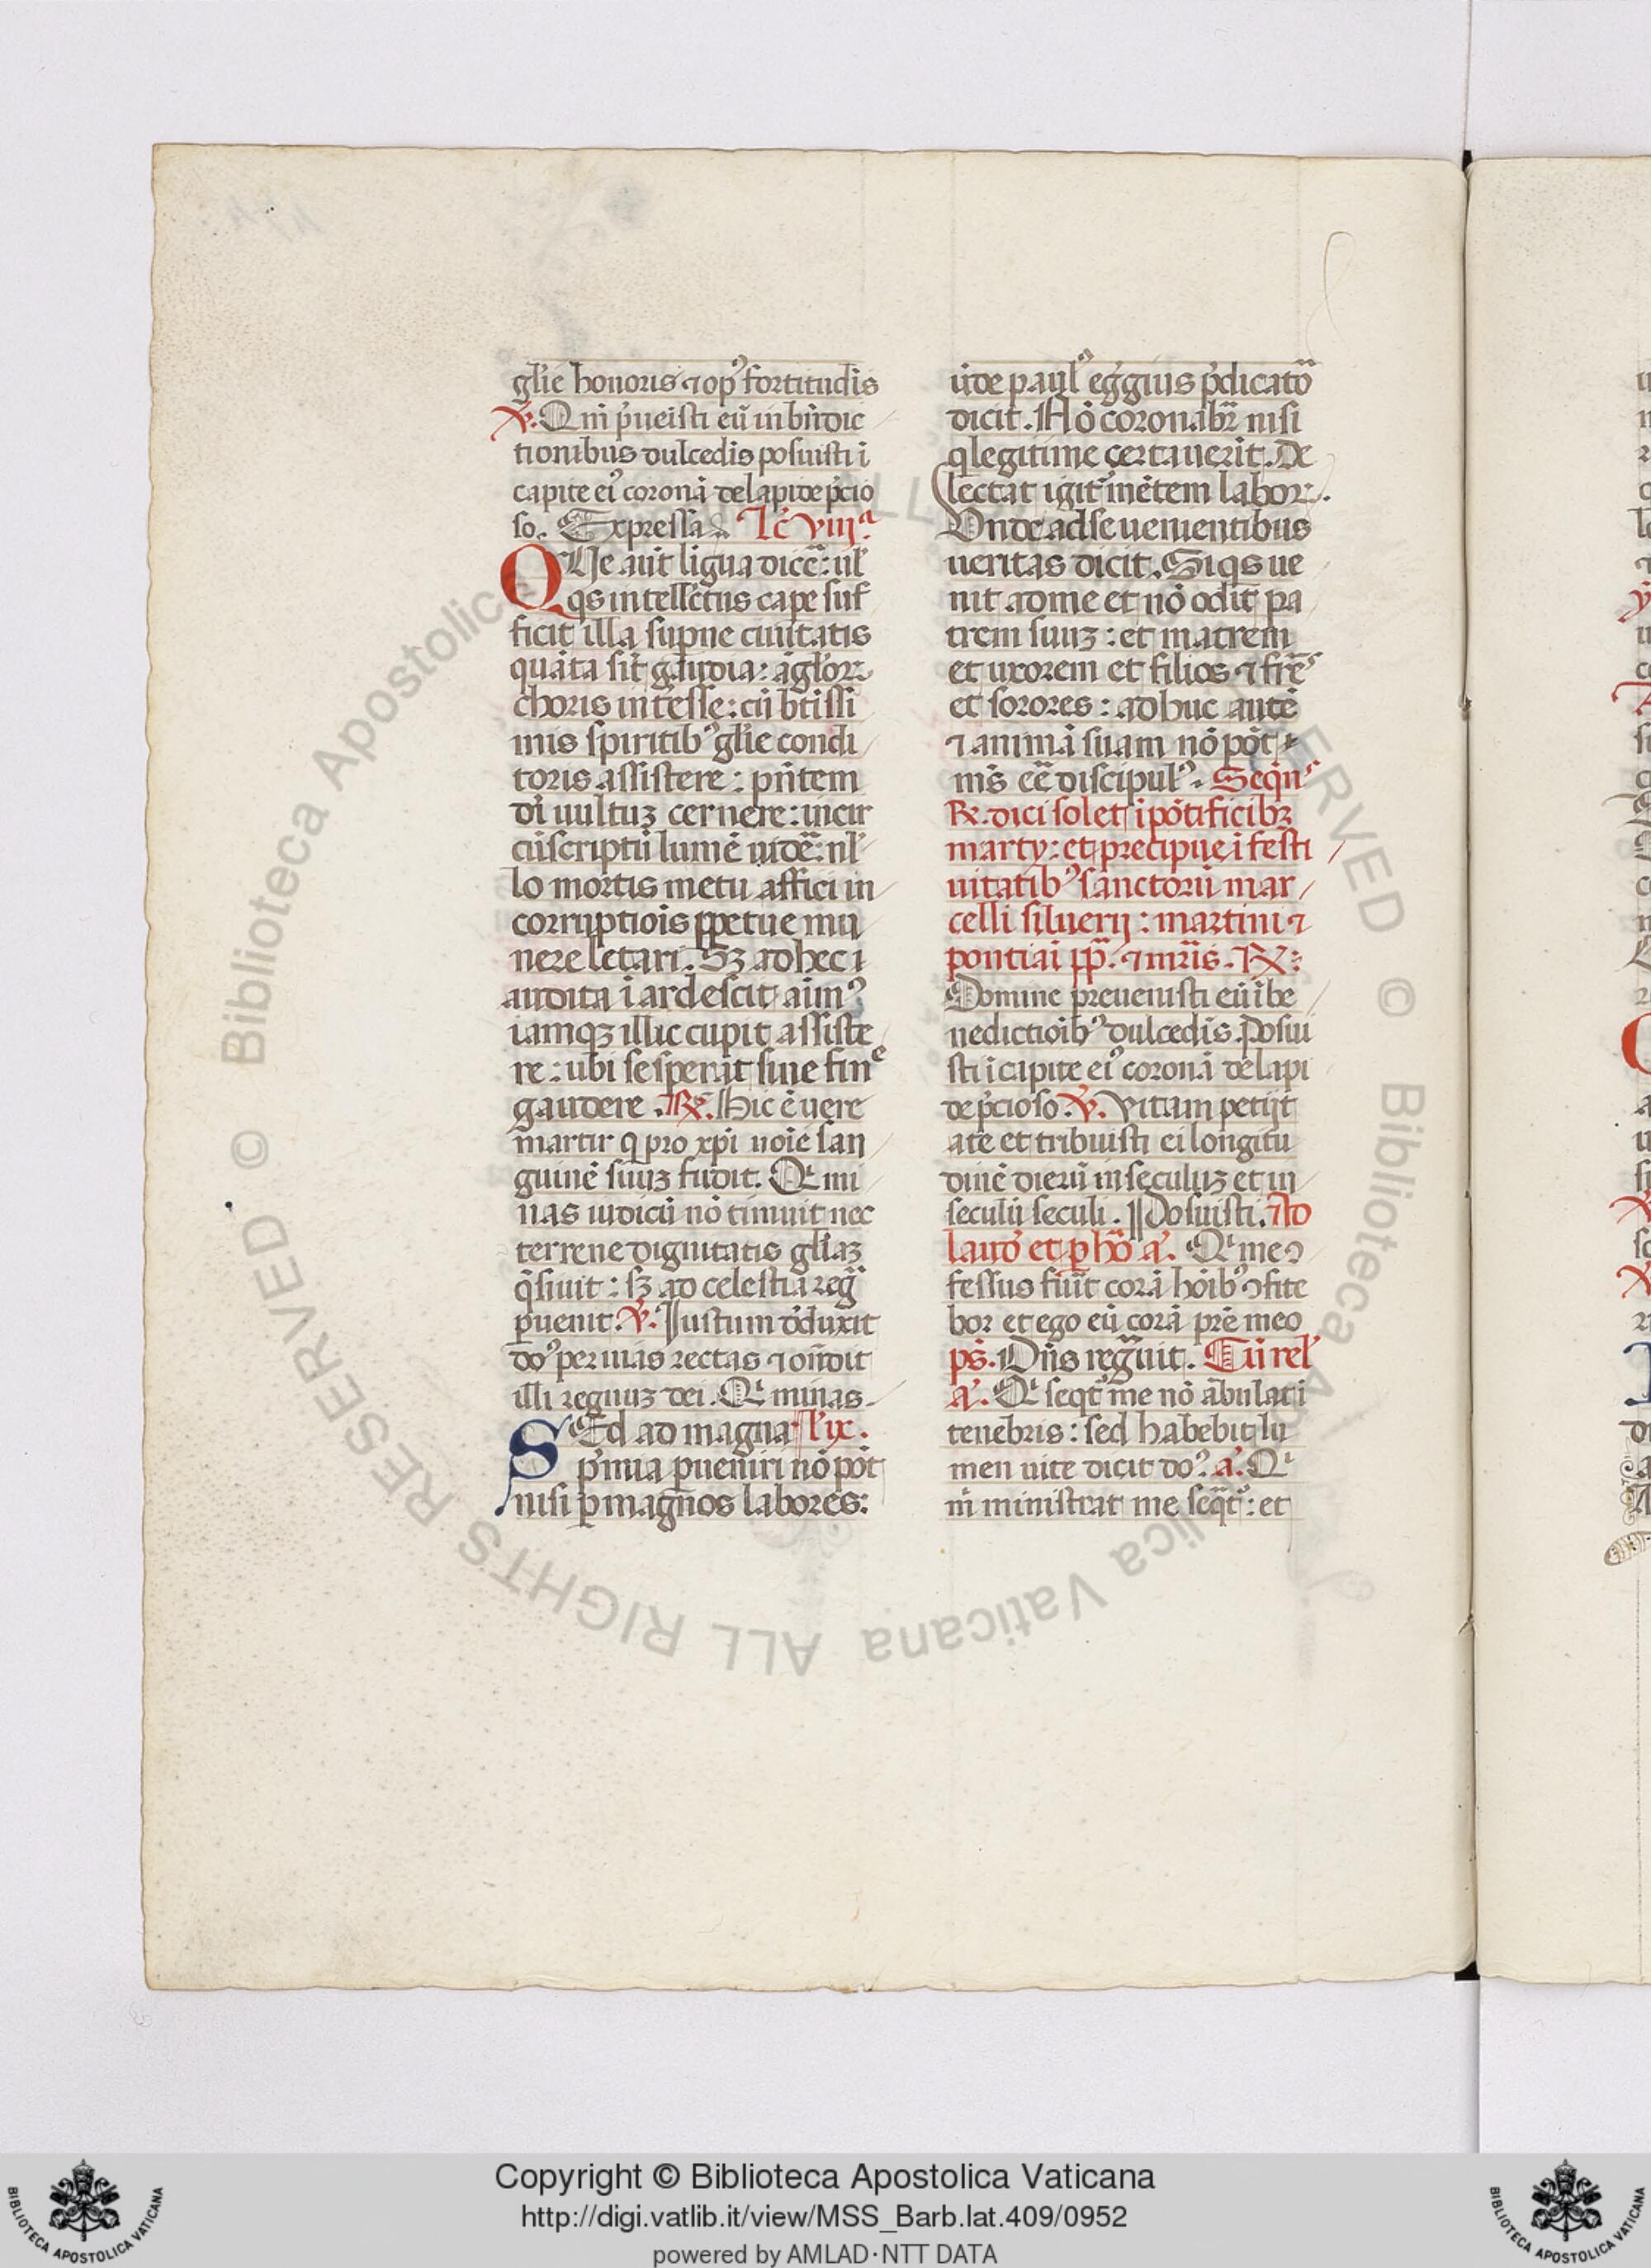 gl'ie honoris ⁊ op' fortitudis
℣. Qm̄ p̄ueīsti eū in bn̄dic
tionibus dulcedīs posuisti ī
capite eī' coronā de lapide p̄cio
so. Expressa Lc̄ viijª
QUe aūt līgua dicē: ul'
q̄s intellectus cape suf
ficit illa sup̄ne ciuitatis
quāta sīt gaudia: āgl'oꝝ
choris intēsse: cū btissi
mis spiritib' gl'ie condi
toris assistere: pn̄tem
dī uultuꝫ cernere: incir
cūscriptū lumē uidē: nl'
lo mortis metu affici in
corruptiōis ꝑpetue mu
nere letari. Sꝫ ad hec ī
audita īardescit aīm'
iamqꝫ illic cupit assiste
re: ubi se sperat sine fine
gaudere. ℟. Hic ē uere
martir q pro xp̄i noīe san
guinē suuꝫ fudit. Qⁱ mi
nas iudicū nō timuit nec
terrene dignitatis gl'iaꝫ
q̄siuit: sꝫ ad celestia reḡ
ꝑuenit. ℣. Iustum dēduxit
do' per uias rectas ⁊ on̄dit
illi regnuꝫ dei. Qⁱ minas.
SEd ad magna l' ix.
p̄mia ꝑueniri nō pōt
nisi ꝑ magnos labores:
ūde paul' eggius p̄dicatō
dicit. Nō coronabr̄ nisi
q legitime certauerit. De
lectat igit' mētem laboꝝ.
Unde ad se uenientibus
ueritas dicit. Si q̄s ue
nit ad me et nō odit pa
trem suuꝫ: et matrem
et uxorem et filios ⁊ frēs
et sorores: adhuc autē
⁊ animā suam nō pōt
m̄s eē discipul'. Seqn̄s
℟. dici solet ī pōtificibꝫ
marty: et precipue ī festi
uitatib' sanctorū mar
celli siluerij: martini ⁊
pontiāi pp̄. ⁊ mr̄is. ℟:
Domine preuenisti eū ī be
nedictiōib' dulcedīs. Posui
sti ī capite eī' coronā de lapi
de p̄cioso. ℣. Vitam petijt
a te et tribuisti ei longitu
dinē dierū in seculuꝫ et in
seculū seculi. Posuisti. Ad
laud' et ꝑ hō a'. Qⁱ me ɔ
fessus fuit corā hōib' ɔfite
bor et ego eū corā prē meo
ps̄. Dn̄s regnauit. Cū rel'
a'. Qⁱ seqt' me nō ābulat ī
tenebris: sed habebit lu
men uite dicit do'. a'. Qⁱ
m̄ ministrat me seq̄t': et
Copyright © Biblioteca Apostolica Vaticana
http://digi.vatlib.it/view/MSS_Barb.lat.409/0952
powered by AMLAD·NTT DATA